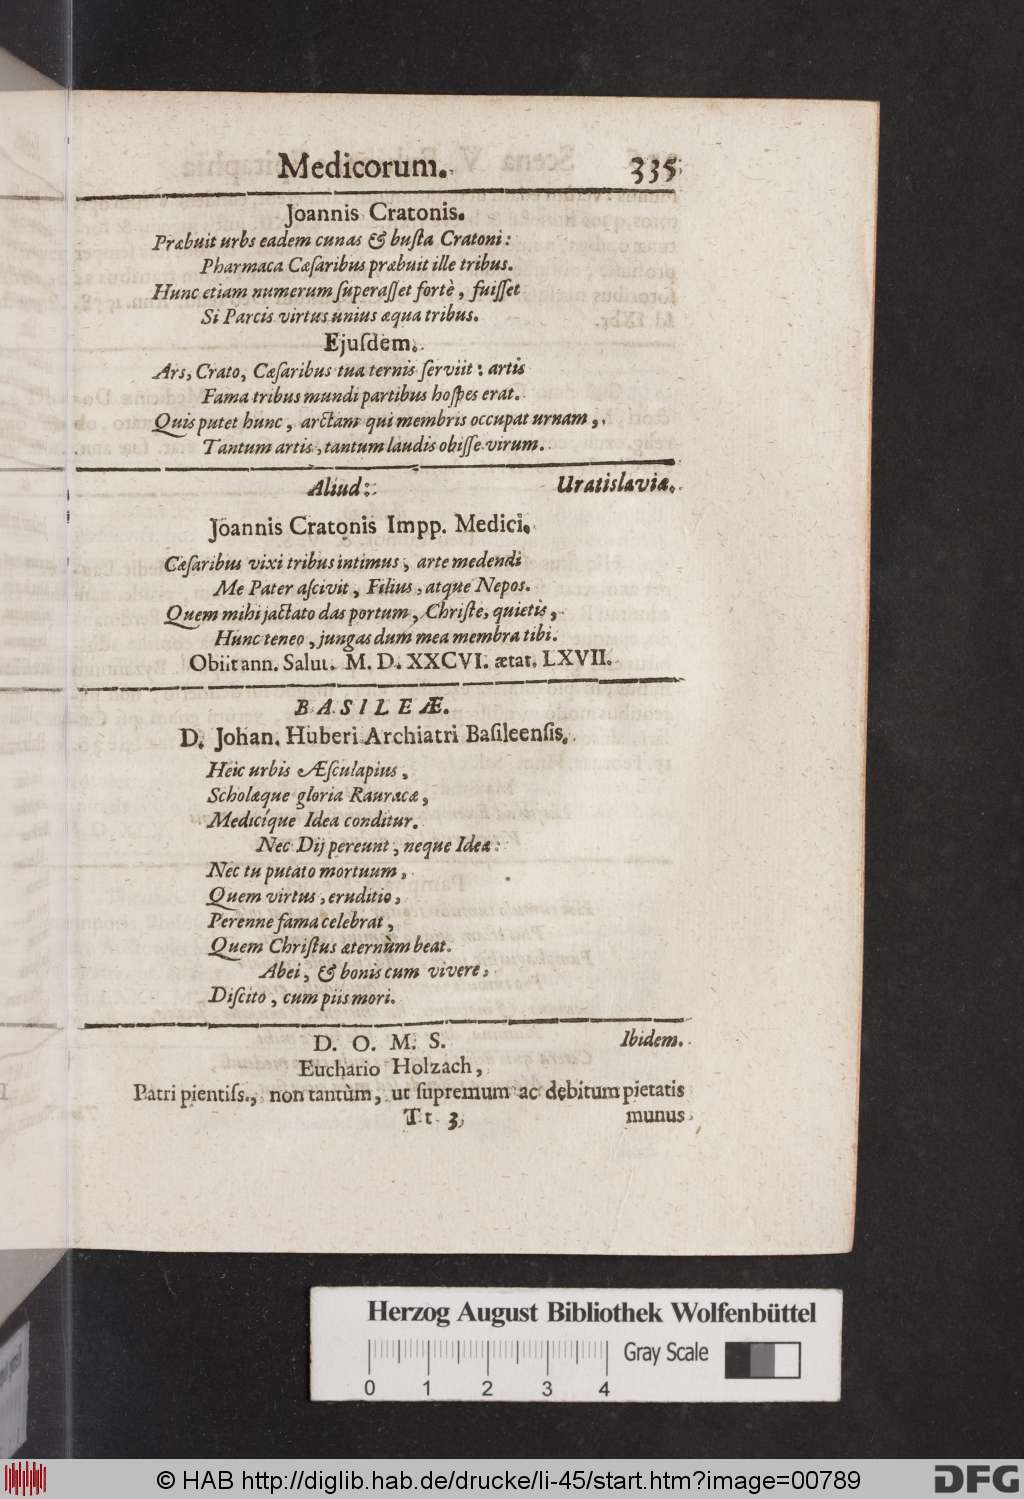 Medicorum. 335
Joannis Cratonis.
Præbuit urbs eadem cunas & buſta Cratoni:
Pharmaca Cæſaribus præbuit ille tribus.
Hunc etiam numerum ſuperaſſet fortè, fuiſſet
Si Parcis virtus unius æqua tribus.
Ejuſdem.
Ars, Crato, Cæſaribus tua ternis ſerviit: artis
Fama tribus mundi partibus hoſpes erat.
Quis putet hunc, arctam qui membris occupat urnam,
Tantum artis, tantum laudis obiſſe virum.
Aliud: Uratislaviæ.
Joannis Cratonis Impp. Medici.
Cæſaribus vixi tribus intimus, arte medendi
Me Pater aſcivit, Filius, atque Nepos.
Quem mihi jactato das portum, Chriſte, quietis,
Hunc teneo, jungas dum mea membra tibi.
Obiit ann. Salut. M. D. XXCVI. ætat. LXVII.
BASILEÆ.
D. Johan. Huberi Archiatri Baſileenſis.
Heic urbis Æſculapius,
Scholæque gloria Rauracæ,
Medicíque Idea conditur.
Nec Dij pereunt, neque Idea:
Nec tu putato mortuum,
Quem virtus, eruditio,
Perenne fama celebrat,
Quem Chriſtus æternùm beat.
Abei, & bonis cum vivere,
Diſcito, cum piis mori.
D. O. M. S. Ibidem.
Euchario Holzach,
Patri pientiſs., non tantùm, ut ſupremum ac debitum pietatis
Tt 3 munus
Herzog August Bibliothek Wolfenbüttel
Gray Scale
0 1 2 3 4
© HAB http://diglib.hab.de/drucke/li-45/start.htm?image=00789
DFG